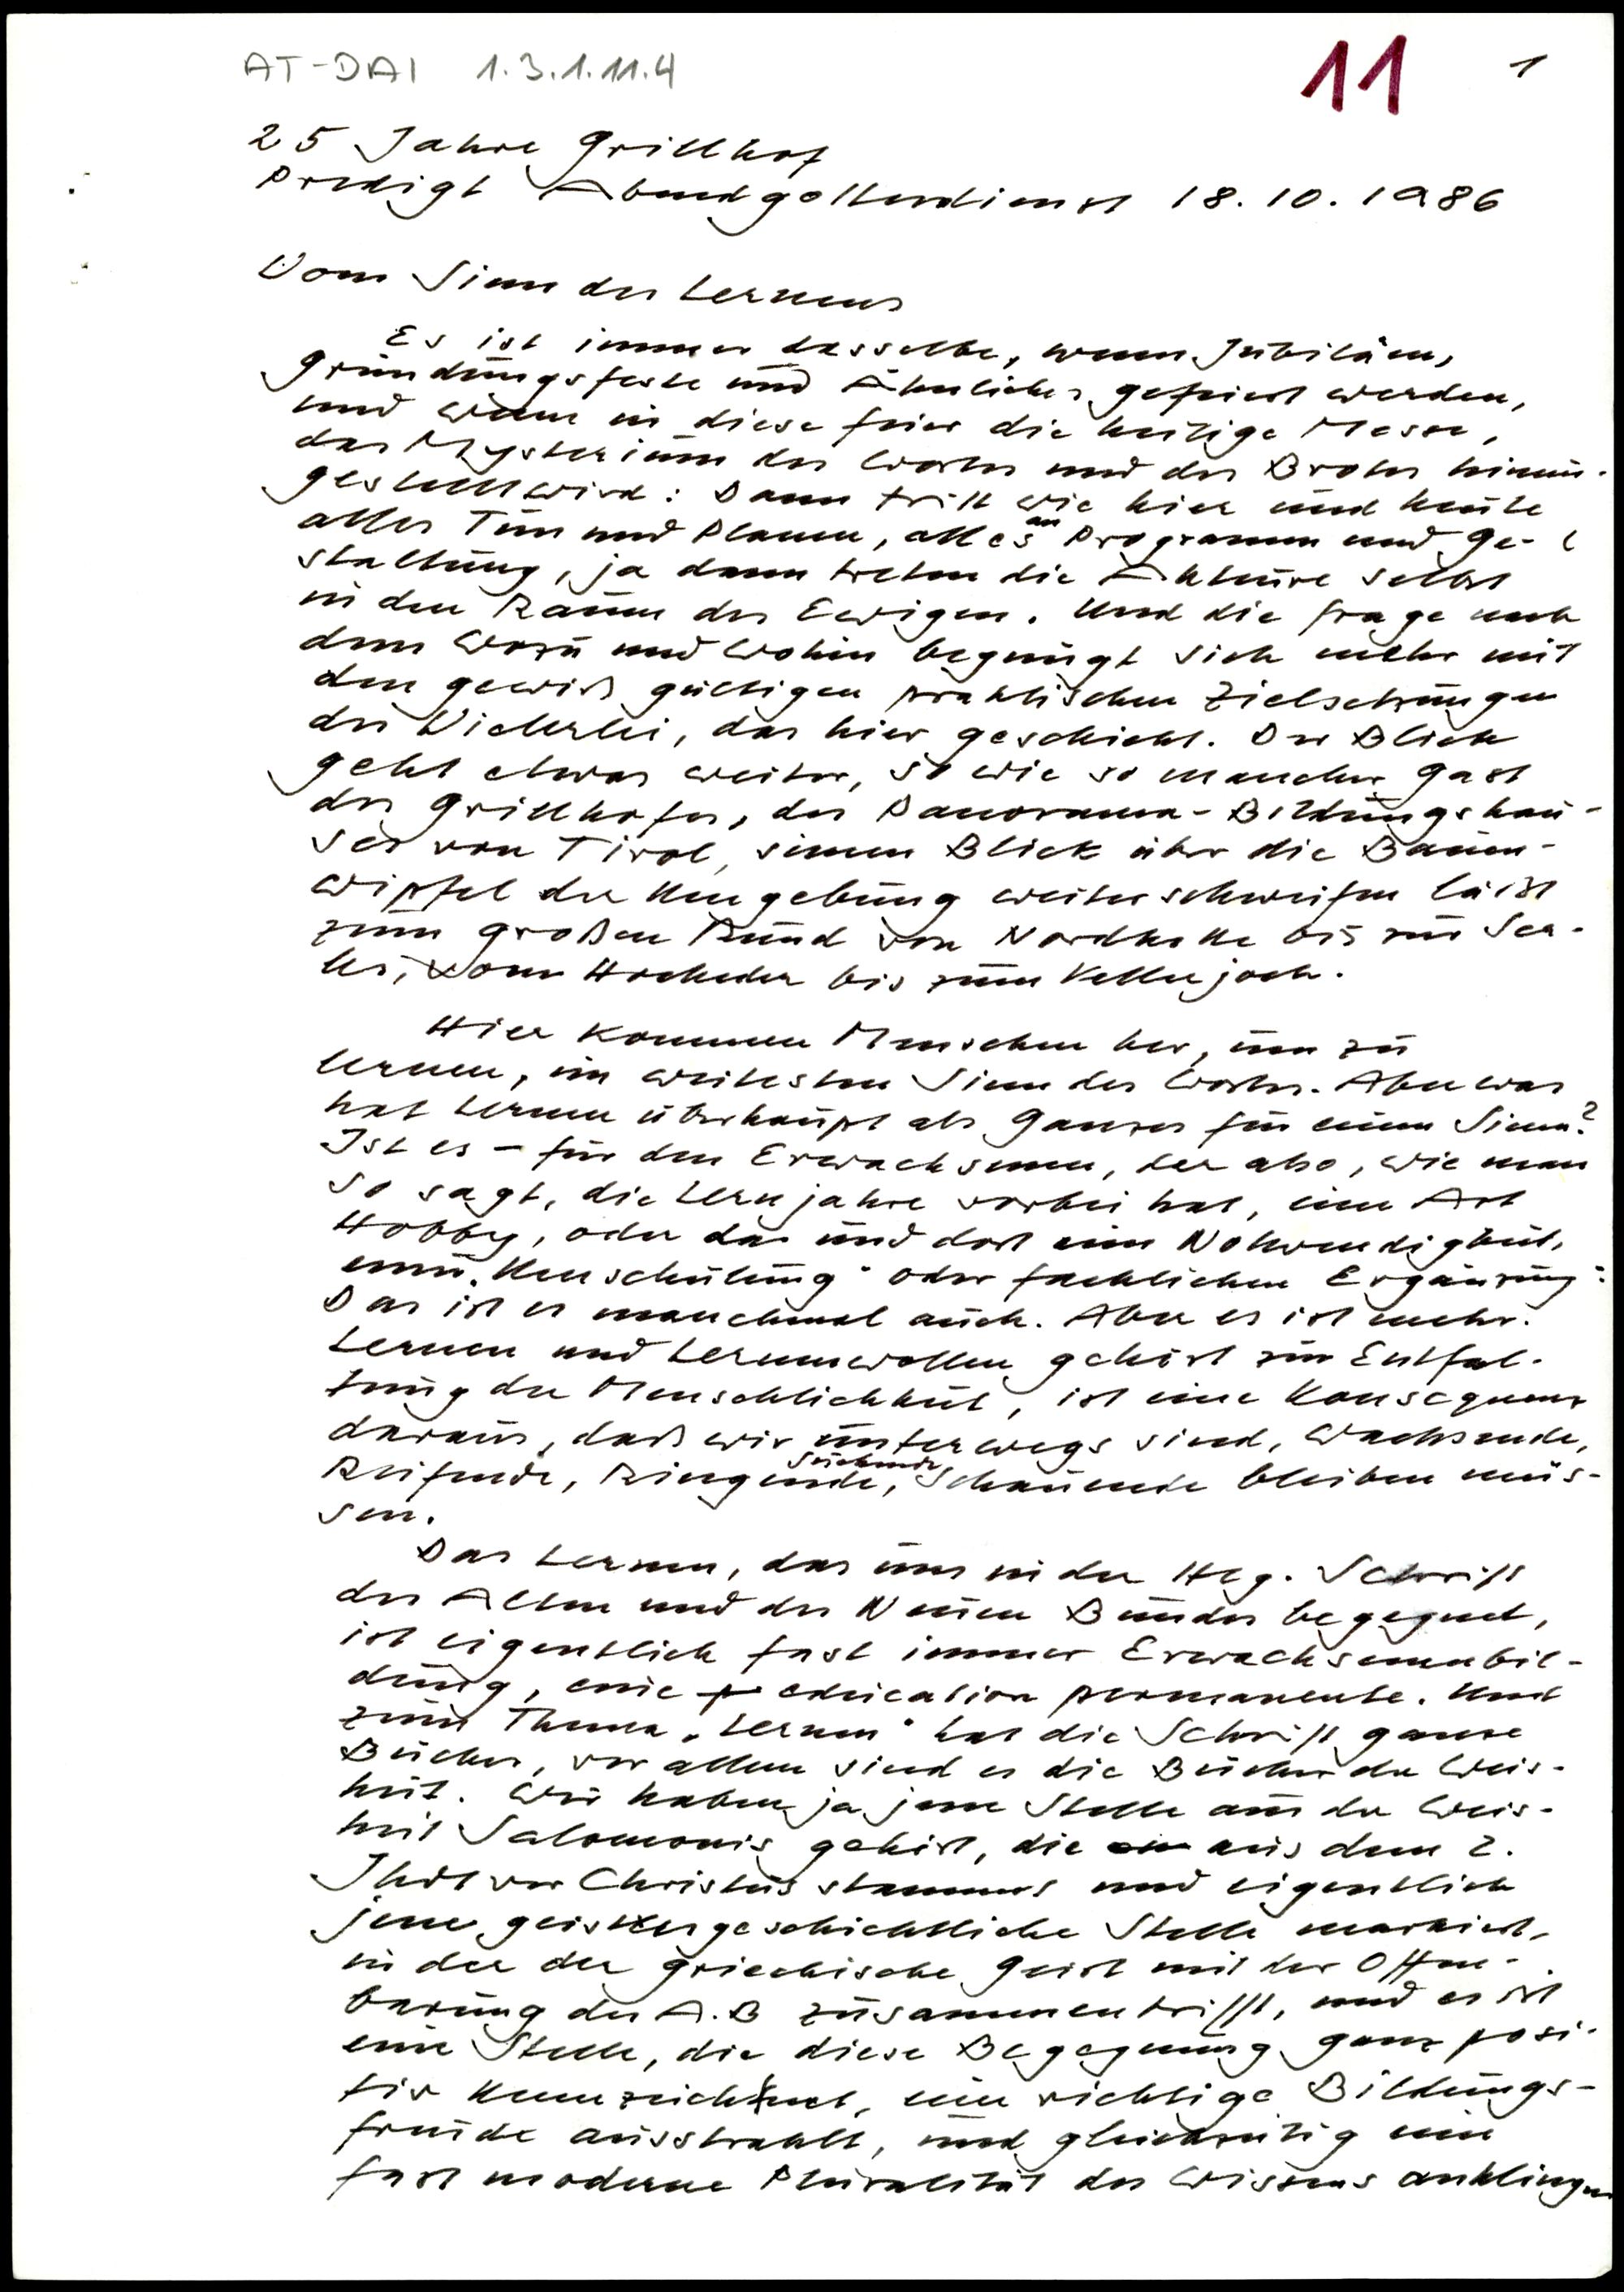 AT-DAI 1.3.1.11.4
11
1
25 Jahre Grillhof
Predigt Abendgottesdienst 18.10.1986
Vom Sinn des Lernens
Es ist immer dasselbe, wenn Jubiläen,
Gründungsfeste und Ähnliches gefeiert werden,
und wenn in diese Feier die heilige Messe,
das Mysterium des Wortes und des Brotes hinein-
gestellt wird: Dann tritt wie hier und heute
alles Tun und Planen, alles an Programm und Ge-
staltung, ja dann treten die Akteure selbst
in den Raum des Ewigen. Und die Frage nach
dem Wozu und Wohin begnügt sich mehr mit
den gewiß gültigen praktischen Zielsetzungen
des Vielerlei, das hier geschieht. Der Blick
geht etwas weiter, so wie so mancher Gast
des Grillhofes, des Panorama-Bildungshau-
ses von Tirol, seinen Blick über die Baum-
wipfel der Umgebung weiterschweifen läßt
zum großen Rund von Nordkette bis zur Ser-
les, vom Hocheder bis zum Kellerjoch.
Hier kommen Menschen her, um zu
lernen, im weitesten Sinn des Wortes. Aber was
hat Lernen überhaupt als Ganzes für einen Sinn?
Ist es – für den Erwachsenen, der also, wie man
so sagt, die Lernjahre vorbei hat, eine Art
Hobby, oder da und dort eine Notwendigkeit,
eine „Umschulung" oder fachlichen Ergänzung?
Das ist es manchmal auch. Aber es ist mehr.
Lernen und Lernenwollen gehört zur Entfal-
tung der Menschlichkeit, ist eine Konsequenz
daraus, daß wir unterwegs sind, Wachsende,
Reifende, Ringende, Suchende, Schauende bleiben müs-
sen.
Das Lernen, das uns in der Hlg. Schrift
des Alten und des Neuen Bundes begegnet,
ist eigentlich fast immer Erwachsenenbil-
dung, eine education permanente. Und
zum Thema „Lernen" hat die Schrift ganze
Bücher, vor allem sind es die Bücher der Weis-
heit. Wir haben ja jene Stelle aus der Weis-
heit Salomonis gehört, die aus dem 2.
Jhdt vor Christus stammt und eigentlich
jene geistesgeschichtliche Stelle markiert,
in der der griechische Geist mit der Offen-
barung des A.B zusammentrifft, und es ist
eine Stelle, die diese Begegnung ganz posi-
tiv kennzeichnet, eine richtige Bildungs-
freude ausstrahlt, und gleichzeitig eine
fast moderne Pluralität des Wissens anklingen